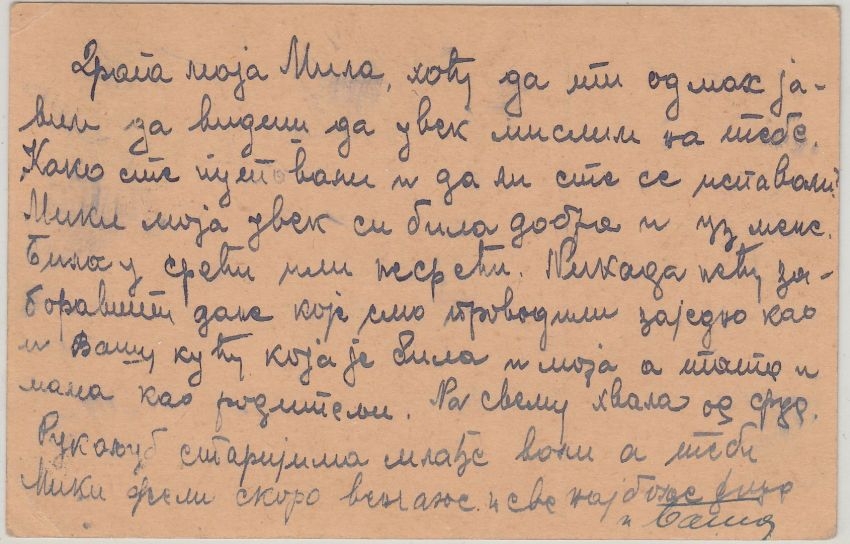 Драга моја Мила, хоћу да ти одмах ја-
вим да видиш да увек мислим на тебе.
Како сте путовали и да ли сте се испавали?
Мики моја увек си била добра и уз мене.
Била у срећи или несрећи. Никада нећу за-
боравити дане које смо проводили заједно као
и Вашу кућу која је била и моја а тата и
мама као родитељи. На свему хвала од срца.
Рукољуб старијима млађе воли а теби
Мики жели скоро венчање и све најбоље
и Ваша